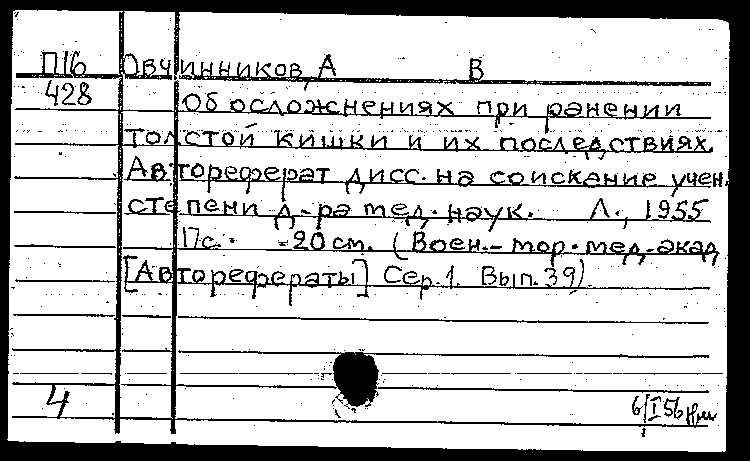 П16 Овчинников, А В
428 Об осложнениях при ранении
толстой кишки и их последствиях.
Автореферат дисс. на соискание учен.
степени д-ра мед. наук. Л., 1955
17с. - 20 см. (Воен.-мор. мед. акад
[Авторефераты] Сер.1. Вып.39)
4 6/I 56